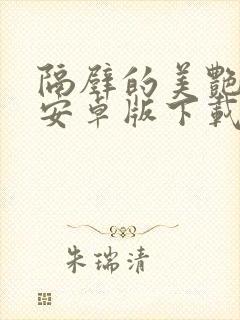 隔壁的美艷
安卓版下載
朱瑞清